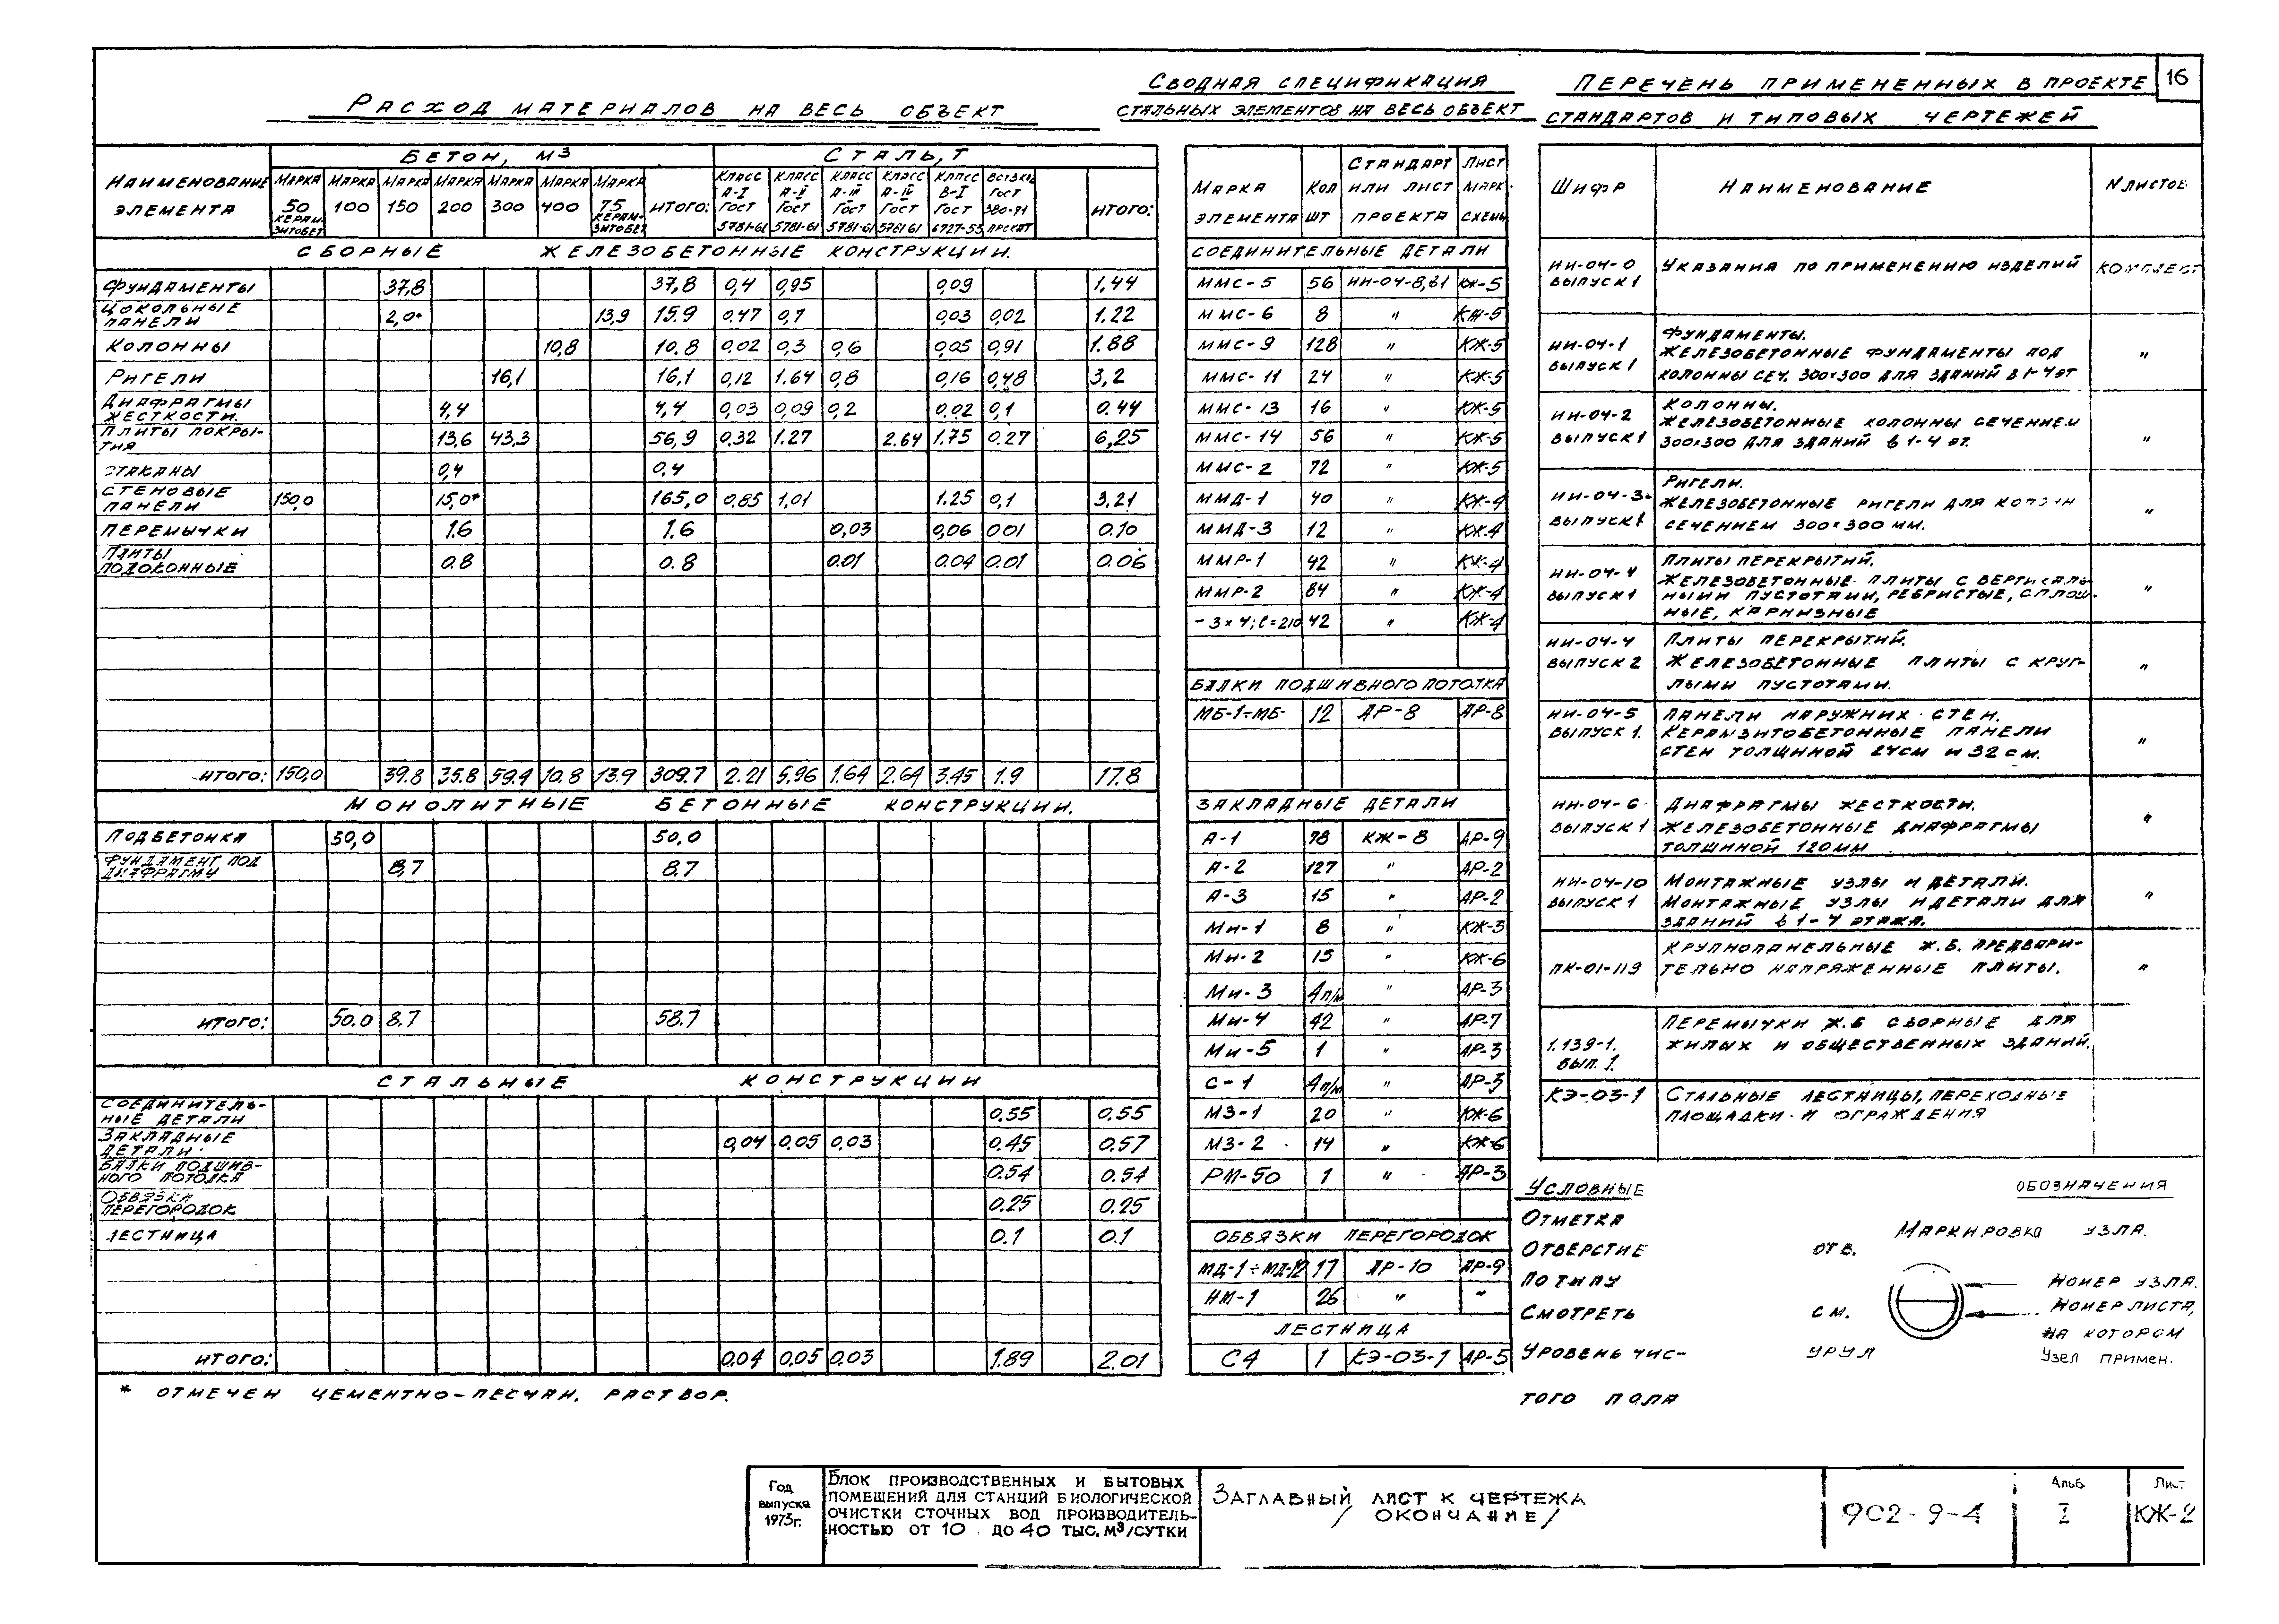 16
Расход материалов на весь объект
Сводная спецификация
стальных элементов на весь объект
Перечень примененных в проекте
стандартов и типовых чертежей
Наименование элемента | Бетон, м3 | Сталь, т
Марка 50 керамзитобет | Марка 100 | Марка 150 | Марка 200 | Марка 300 | Марка 400 | Марка 75 керамзитобет | Итого: | Класс А-I ГОСТ 5781-61 | Класс А-II ГОСТ 5781-61 | Класс А-III ГОСТ 5781-61 | Класс А-IV ГОСТ 5781 61 | Класс В-I ГОСТ 6727-53 | ГОСТ 380-71 прокат | Итого:
Сборные железобетонные конструкции.
Фундаменты 37,8 37,8 0,4 0,95 0,09 1,44
Цокольные панели 2,0* 13,9 15.9 0.47 0,7 0,03 0,02 1.22
Колонны 10,8 10.8 0,02 0,3 0,6 0,05 0,91 1.88
Ригели 16,1 16,1 0,12 1.64 0,8 0,16 0,48 3,2
Диафрагмы жесткости. 4,4 4,4 0,03 0,09 0,2 0.02 0,1 0.44
Плиты покрытия 13,6 43,3 56,9 0,32 1.27 2.64 1.75 0.27 6,25
Стаканы 0,4 0.4
Стеновые панели 150,0 15,0* 165,0 0.85 1,01 1.25 0,1 3.21
Перемычки 1.6 1.6 0,03 0,06 001 0.10
Плиты подоконные 0.8 0.8 0.01 0.04 0.01 0.06
Итого: 150,0 39.8 35.8 59.4 10.8 13.9 309.7 2.21 5.96 1.64 2.64 3.45 1.9 17.8
Монолитные бетонные конструкции.
Подбетонка 50,0 50,0
Фундамент под диафрагму 8,7 8.7
Итого: 50.0 8.7 58.7
Стальные конструкции
Соединительные детали 0.55 0.55
Закладные детали. 0,04 0,05 0,03 0.45 0.57
Балки подшивного потолка 0.54 0.54
Обвязки перегородок 0.25 0.25
Лестница 0.1 0.1
Итого: 0,04 0,05 0,03 1.89 2.01
* отмечен цементно-песчан. раствор.
Марка элемента | Кол шт | Стандарт или лист проекта | Лист марк. схемы
Соединительные детали
ММС-5 56 ИИ-04-8,61 КЖ-5
ММС-6 8 " КЖ-5
ММС-9 128 " КЖ-5
ММС-11 24 " КЖ-5
ММС-13 16 " КЖ-5
ММС-14 56 " КЖ-5
ММС-2 72 " КЖ-5
ММД-1 40 " КЖ-4
ММД-3 12 " КЖ-4
ММР-1 42 " КЖ-4
ММР-2 84 " КЖ-4
-3×4; ℓ=210 42 " КЖ-4
Балки подшивного потолка
МБ-1÷МБ- 12 АР-8 АР-8
Закладные детали
А-1 78 КЖ-8 АР-9
А-2 127 " АР-2
А-3 15 " АР-2
Мн-1 8 " КЖ-3
Мн-2 15 " КЖ-6
Мн-3 4п/м " АР-3
Мн-4 42 " АР-7
Мн-5 1 " АР-3
С-1 4п/м " АР-3
МЗ-1 20 " КЖ-6
МЗ-2 14 " КЖ-6
РМ-50 1 " АР-3
Обвязки перегородок
МД-1÷МД-12 17 АР-10 АР-9
НМ-1 26 " "
Лестница
С4 1 КЭ-03-1 АР-5
Шифр | Наименование | N листов
ИИ-04-0 выпуск 1 Указания по применению изделий комплект
ИИ-04-1 выпуск 1 Фундаменты.
Железобетонные фундаменты под
колонны сеч. 300×300 для зданий в 1-4 эт "
ИИ-04-2 выпуск 1 Колонны.
Железобетонные колонны сечением
300×300 для зданий в 1-4 эт. "
ИИ-04-3 выпуск 1 Ригели.
Железобетонные ригели для колонн
сечением 300×300 мм. "
ИИ-04-4 выпуск 1 Плиты перекрытий.
Железобетонные плиты с вертикаль-
ными пустотами, ребристые, сплош-
ные, карнизные "
ИИ-04-4 выпуск 2 Плиты перекрытий.
Железобетонные плиты с круг-
лыми пустотами. "
ИИ-04-5 выпуск 1. Панели наружних стен.
Керамзитобетонные панели
стен толщиной 24см и 32см. "
ИИ-04-6 выпуск 1 Диафрагмы жесткости.
Железобетонные диафрагмы
толщиной 120мм "
ИИ-04-10 выпуск 1 Монтажные узлы и детали.
Монтажные узлы и детали для
зданий в 1-4 этажа. "
ПК-01-119 Крупнопанельные ж.б. предвари-
тельно напряженные плиты. "
1.139-1. вып. 1. Перемычки ж.б сборные для
жилых и общественных зданий.
КЭ-03-1 Стальные лестницы, переходные
площадки и ограждения
Условные обозначения
Отметка
Маркировка узла.
Отверстие отв.
По типу
Номер узла.
Смотреть см.
Номер листа,
на котором
Узел примен.
Уровень чис- УРУЛ
того пола
Год
выпуска
1973г.
Блок производственных и бытовых
помещений для станций биологической
очистки сточных вод производитель-
ностью от 10 до 40 тыс. м3/сутки
Заглавный лист к чертежа
/ окончание /
902-9-4
Альб
I
Лист
КЖ-2